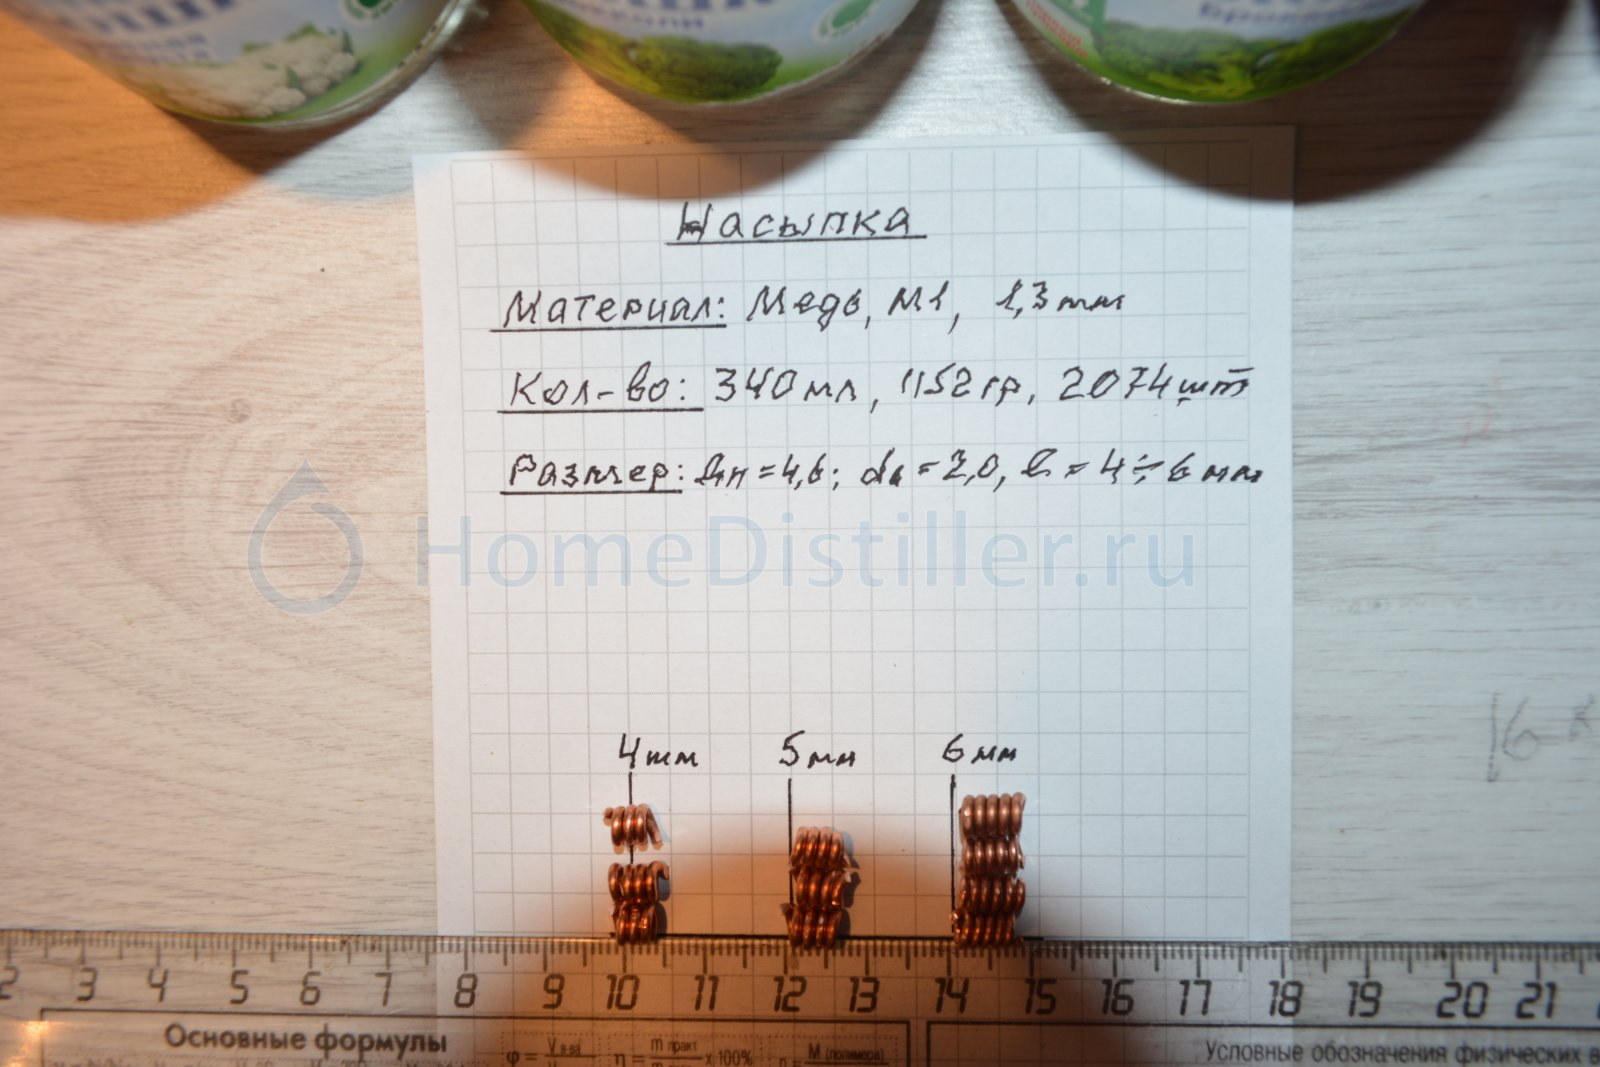 брокколи
Насыпка
Материал: Медь, М1, 1,3 мм
Кол-во: 340 мл, 1152 гр, 2074 шт
Размер: dн = 4,6; dв = 2,0, l = 4÷6 мм
HomeDistiller.ru
4 мм 5 мм 6 мм
2 3 4 5 6 7 8 9 10 11 12 13 14 15 16 17 18 19 20 21
Основные формулы
φ = V в-ва
η = m практ x 100%
M (полимера)
Условные обозначения физических в